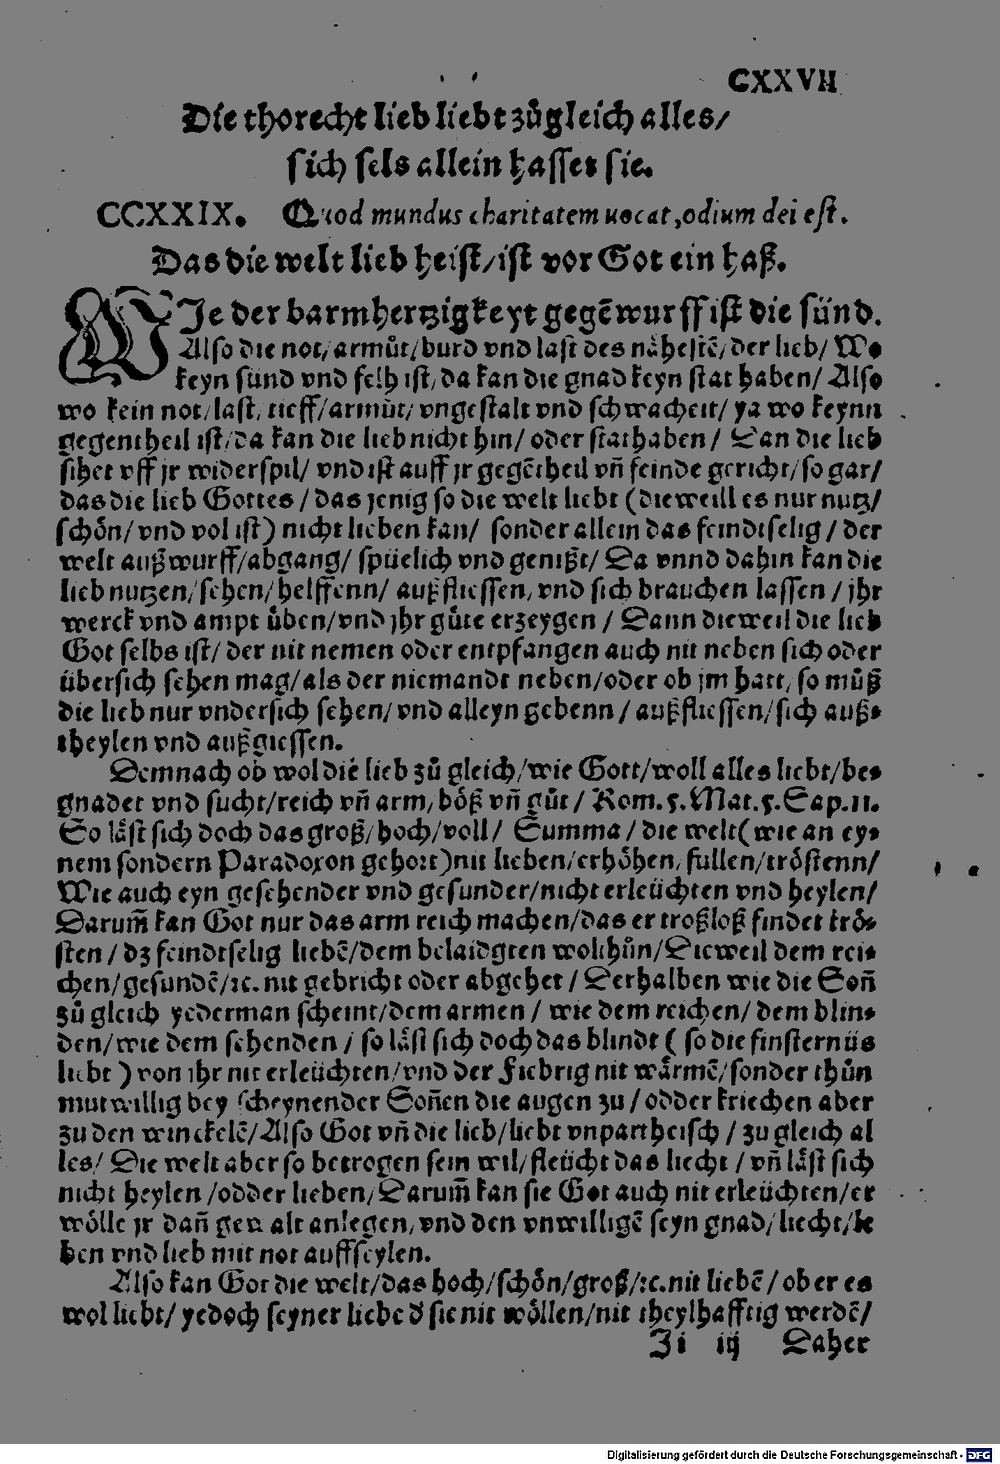 CXXVII
Die thorecht lieb liebt zůgleich alles/
sich sels allein hasset sie.
CCXXIX. Quod mundus charitatem uocat, odium dei est.
Das die welt lieb heist/ist vor Got ein haß.
WIe der barmhertzigkeyt gegẽwurff ist die sünd.
Also die not/armůt/burd vnd last des nähestẽ/der lieb/ Wo
keyn sünd vnd felh ist/da kan die gnad keyn stat haben/ Also
wo kein not/last/tieff/armůt/vngestalt vnd schwacheit/ ya wo keynn
gegentheil ist/da kan die lieb nicht hin/ oder stat haben/ Dan die lieb
sihet vff jr widerspil/ vnd ist auff jr gegẽtheil vñ feinde gericht/so gar/
das die lieb Gottes/das jenig so die welt liebt (die weill es nur nutz/
schön/vnd vol ist) nicht lieben kan/ sonder allein das feindtselig/der
welt außwurff/abgang/ spüelich vnd genißt/ Da vnnd dahin kan die
lieb nutzen/sehen/helffenn/ außfliessen/vnd sich brauchen lassen/jhr
werck vnd ampt üben/vnd jhr gůte erzeygen/ Dann dieweil die lieb
Got selbs ist/ der nit nemen oder entpfangen auch nit neben sich oder
übersich sehen mag/als der niemandt neben/oder ob jm hatt/so můß
die lieb nur vndersich sehen/vnd alleyn gebenn/außfliessen/sich auß-
theylen vnd außgiessen.
Demnach ob wol die lieb zů gleich/wie Gott/woll alles liebt/be-
gnadet vnd sucht/reich vñ arm/böß vñ gůt/ Rom.5.Mat.5.Sap.11.
So läst sich doch das groß/hoch/voll/ Summa/die welt(wie an ey-
nem sondern Paradoxon gehort)nit lieben/erhöhen/fullen/tröstenn/
Wie auch eyn gesehender vnd gesunder/nicht erleüchten vnd heylen/
Darum̃ kan Got nur das arm reich machen/das er troßloß findet trö-
sten/dz feindtselig liebẽ/dem belaidgten wolthůn/Dieweil dem rei-
chen/gesundẽ/ꝛc. nit gebricht oder abgehet/ Derhalben wie die Soñ
zů gleich yederman scheint/dem armen/wie dem reichen/dem blin-
den/wie dem sehenden/ so läst sich doch das blindt ( so die finsternüs
liebt ) von jhr nit erleüchten/vnd der Fiebrig nit wärmẽ/sonder thůn
mutwillig bey scheynender Soñen die augen zu/odder kriechen aber
zu den winckelẽ/Also Got vñ die lieb/liebt vnpartheisch/zu gleich al
les/ Die welt aber so betrogen sein wil/fleücht das liecht/vñ läst sich
nicht heylen/odder lieben/Darum̃ kan sie Got auch nit erleüchten/er
wölle jr dañ gewalt anlegen/vnd den vnwilligẽ seyn gnad/liecht/le
ben vnd lieb mit not auffseylen.
Also kan Got die welt/das hoch/schön/groß/ꝛc.nit liebẽ/ob er es
wol liebt/ yedoch seyner liebe d sie nit wöllen/nit theylhafftig werdẽ/
Ji iij Daher
Digitalisierung gefördert durch die Deutsche Forschungsgemeinschaft - DFG